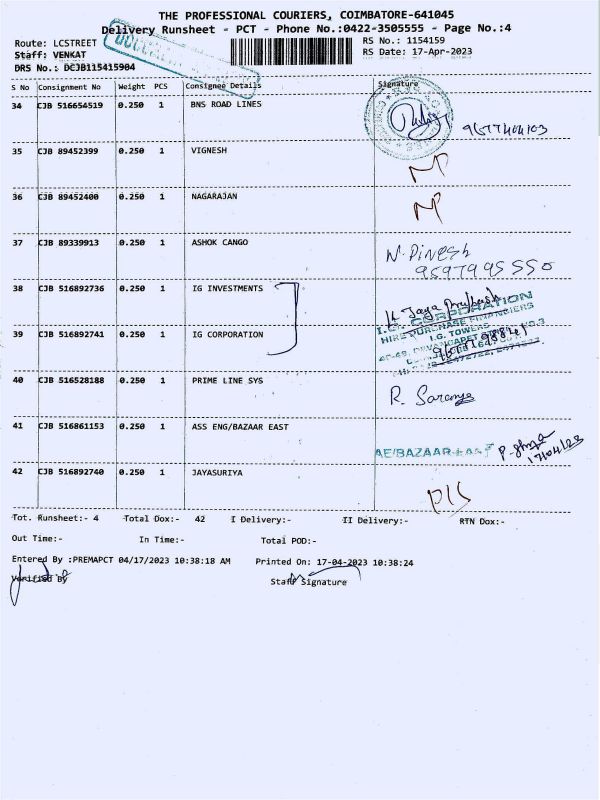 THE PROFESSIONAL COURIERS, COIMBATORE-641045
Delivery Runsheet - PCT - Phone No.:0422-3505555 - Page No.:4
Route: LCSTREET RS No.: 1154159
Staff: VENKAT RS Date: 17-Apr-2023
DRS No.: DCJB115415904
S No Consignment No Weight PCS Consignee Details Signature
34 CJB 516654519 0.250 1 BNS ROAD LINES
35 CJB 89452399 0.250 1 VIGNESH
36 CJB 89452400 0.250 1 NAGARAJAN
37 CJB 89339913 0.250 1 ASHOK CANGO N. Dinesh
9597995550
38 CJB 516892736 0.250 1 IG INVESTMENTS
I.G. CORPORATION
HIRE PURCHASE FINANCIERS
I.G. TOWERS
39 CJB 516892741 0.250 1 IG CORPORATION
40 CJB 516528188 0.250 1 PRIME LINE SYS R. Saranya
41 CJB 516861153 0.250 1 ASS ENG/BAZAAR EAST
AE/BAZAAR EAST 17/04/23
42 CJB 516892740 0.250 1 JAYASURIYA
Tot. Runsheet:- 4 Total Dox:- 42 I Delivery:- II Delivery:- RTN Dox:-
Out Time:- In Time:- Total POD:-
Entered By :PREMAPCT 04/17/2023 10:38:18 AM Printed On: 17-04-2023 10:38:24
Verified By Staff Signature